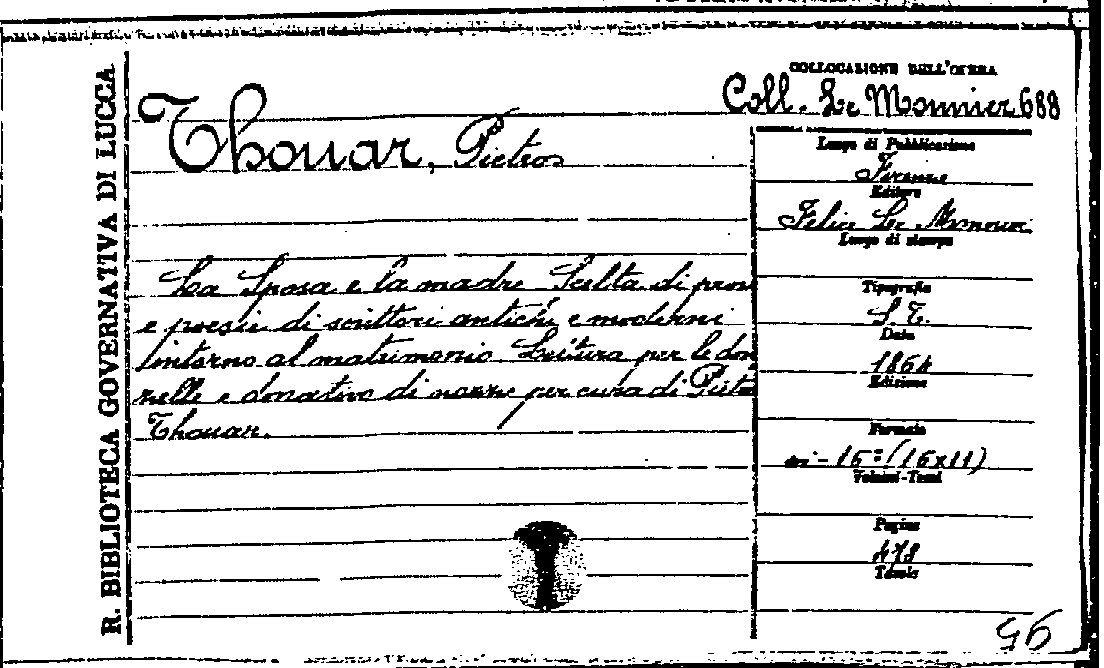 R. BIBLIOTECA GOVERNATIVA DI LUCCA
COLLOCAZIONE DELL'OPERA
Coll. Le Monnier 688
Thouar, Pietro
La Sposa e la madre Scelta di prose
e poesie di scrittori antichi e moderni
intorno al matrimonio. Lettura per le don
zelle e donativo di nozze per cura di Pietro
Thouar.
Luogo di Pubblicazione
Firenze
Editore
Felice Le Monnier
Luogo di stampa
Tipografia
S. T.
Data
1864
Edizione
Formato
in-16º (16x11)
Volumi-Tomi
Pagine
478
Tavole